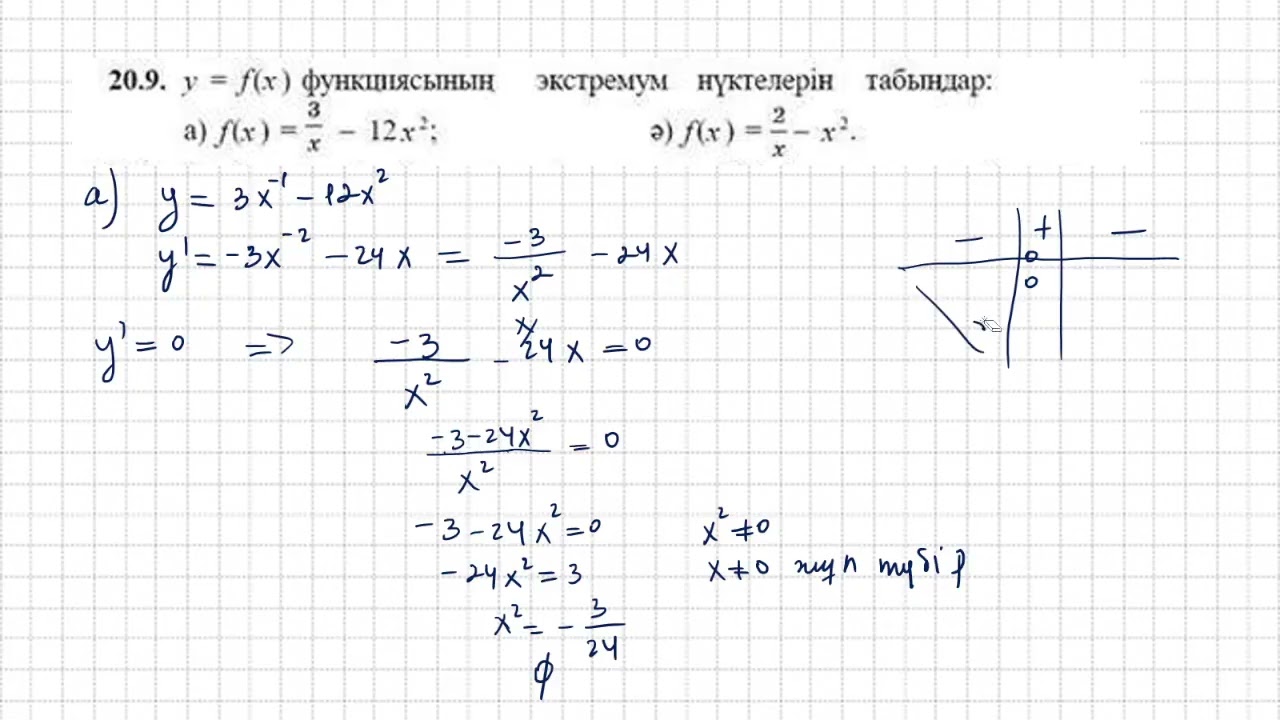 20.9. y = f(x) функциясының экстремум нүктелерін табыңдар:
а) f(x) = 3/x − 12x²; ә) f(x) = 2/x − x².
а) y = 3x⁻¹ − 12x²
y' = −3x⁻² − 24x = −3/x² − 24x
y' = 0 => −3/x² − 24x = 0
x
(−3−24x²)/x² = 0
−3 − 24x² = 0 x² ≠ 0
−24x² = 3 x ≠ 0 жұп түбір
x² = − 3/24
∅
− + −
0
0